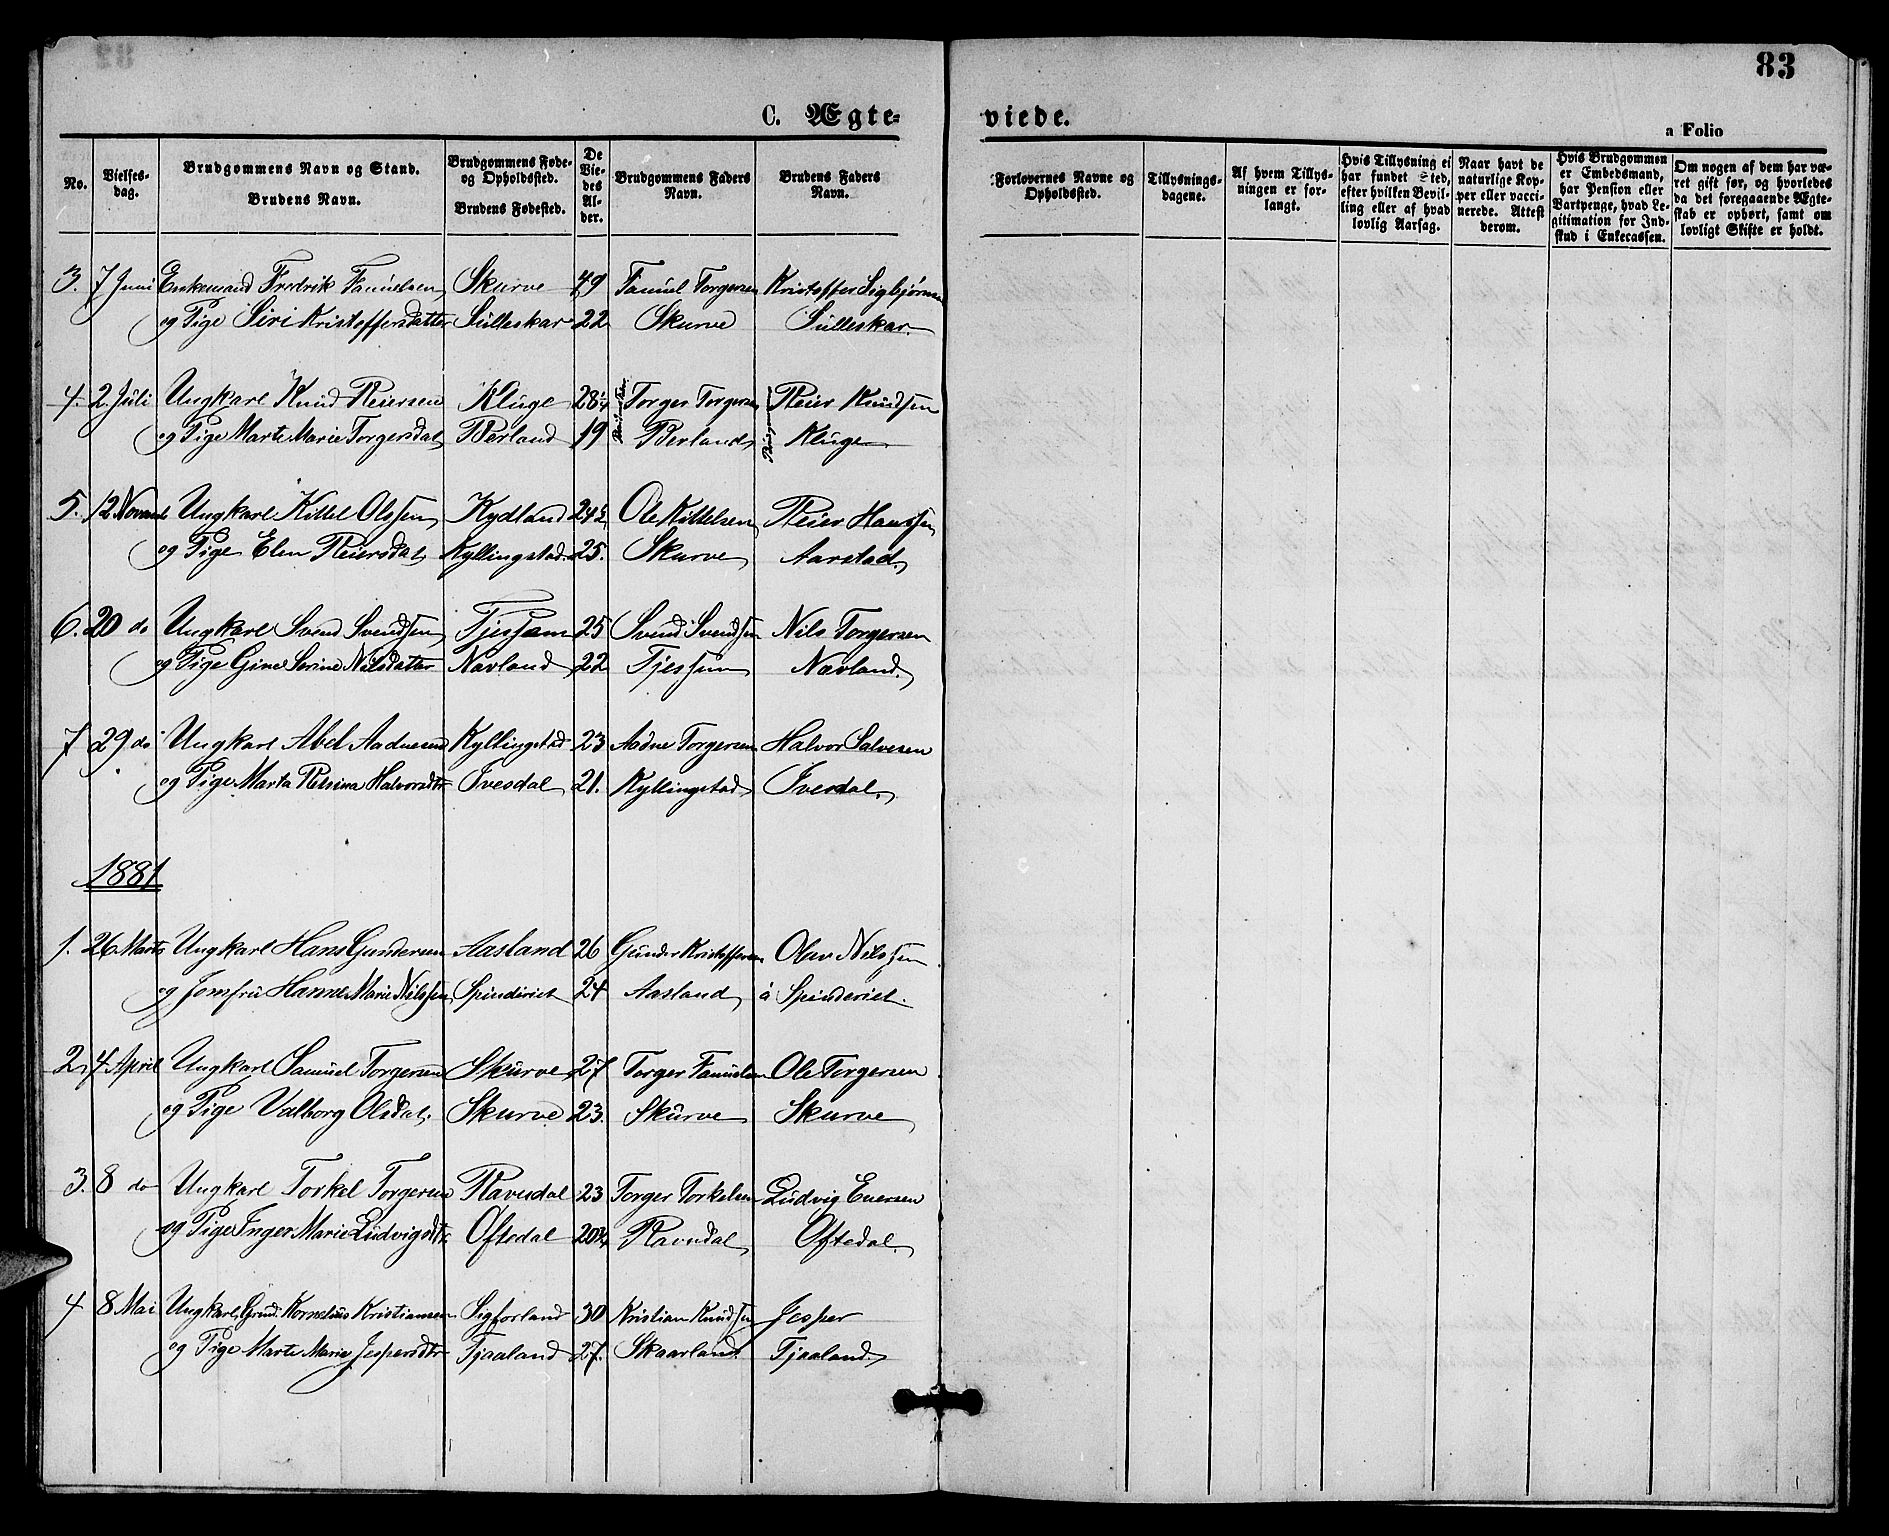 83
C. Ægteviede.
a Folio
No. | Vielsesdag. | Brudgommens Navn og Stand. Brudens Navn. | Brudgommens Føde- og Opholdssted. Brudens Fødested. | De Viedes Alder. | Brudgommens Faders Navn. | Brudens Faders Navn. | Forlovernes Navne og Opholdssted. | Tillysningsdagene. | Af hvem Tillysningen er forlangt. | Hvis Tillysning ei har fundet Sted, efter hvilken Bevilling eller af hvad lovlig Aarsag. | Naar havt de naturlige Kopper eller vaccinerede. Attest derom. | Hvis Brudgommen er Embedsmand, har Pension eller Vartpenge, hvad Legitimation for Indskud i Enkecassen. | Om nogen af dem har været gift før, og hvorledes da det foregaaende Ægteskab er ophørt, samt om lovligt Skifte er holdt.
3. 7 Juni Enkemand Fredrik Samuelsen Skurve 49 Samuel Torgersen Kristoffer Sigbjørnsen
og Pige Siri Kristoffersdatter Sulleskar 22 Skurve Sulleskar.
4. 2. Juli Ungkarl Knud Reiersen Kluge 28¼ Torger Torgersen Reier Knudsen
og Pige Marte Marie Torgersdat. Berland 19 Berland Kluge
5. 12 Novemb Ungkarl Kittel Olssen Kydland 24½ Ole Kittelsen Reier Hanssen
og Pige Elen Reiersdat. Kyllingstad 25. Skurve Aarstad.
6. 20 do Ungkarl Svend Svendsen Tjessem 25 Svend Svendsen Nils Torgersen
og Pige Gine Serine Nilsdatter Navland 22 Tjessem Navland.
7 29 do Ungkarl Abel Aadnesen Kyllingstad 23 Aadne Torgersen Halvor Salvesen
og Pige Marta Helsina Halvorsdtr Ivesdal 21. Kyllingstad Ivesdal.
1881
1. 26 Marts Ungkarl Hans Gundersen Aasland 26 Gunder Kristoffersen Olav Nilssen
og Jomfru Hanne Marie Nilssen Spinderiet 24 Aasland à Spinderiet.
2. 4 April Ungkarl Samuel Torgersen Skurve 27 Torger Samuelsen Ole Torgersen
og Pige Valborg Olsdat. Skurve 23. Skurve Skurve
3. 8 do Ungkarl Torkel Torgersen Ravndal 23 Torger Torkelsen Ludvig Evensen
og Pige Inger Marie Ludvigsdtr Oftedal 20¾ Ravndal Oftedal.
4 8 Mai Ungkarl, Kornelius Kristiansen Sigforland 30 Kristian Knudsen Jesper
og Pige Marte Marie Jespersdtr Tjaaland 27. Skaarland Tjaaland